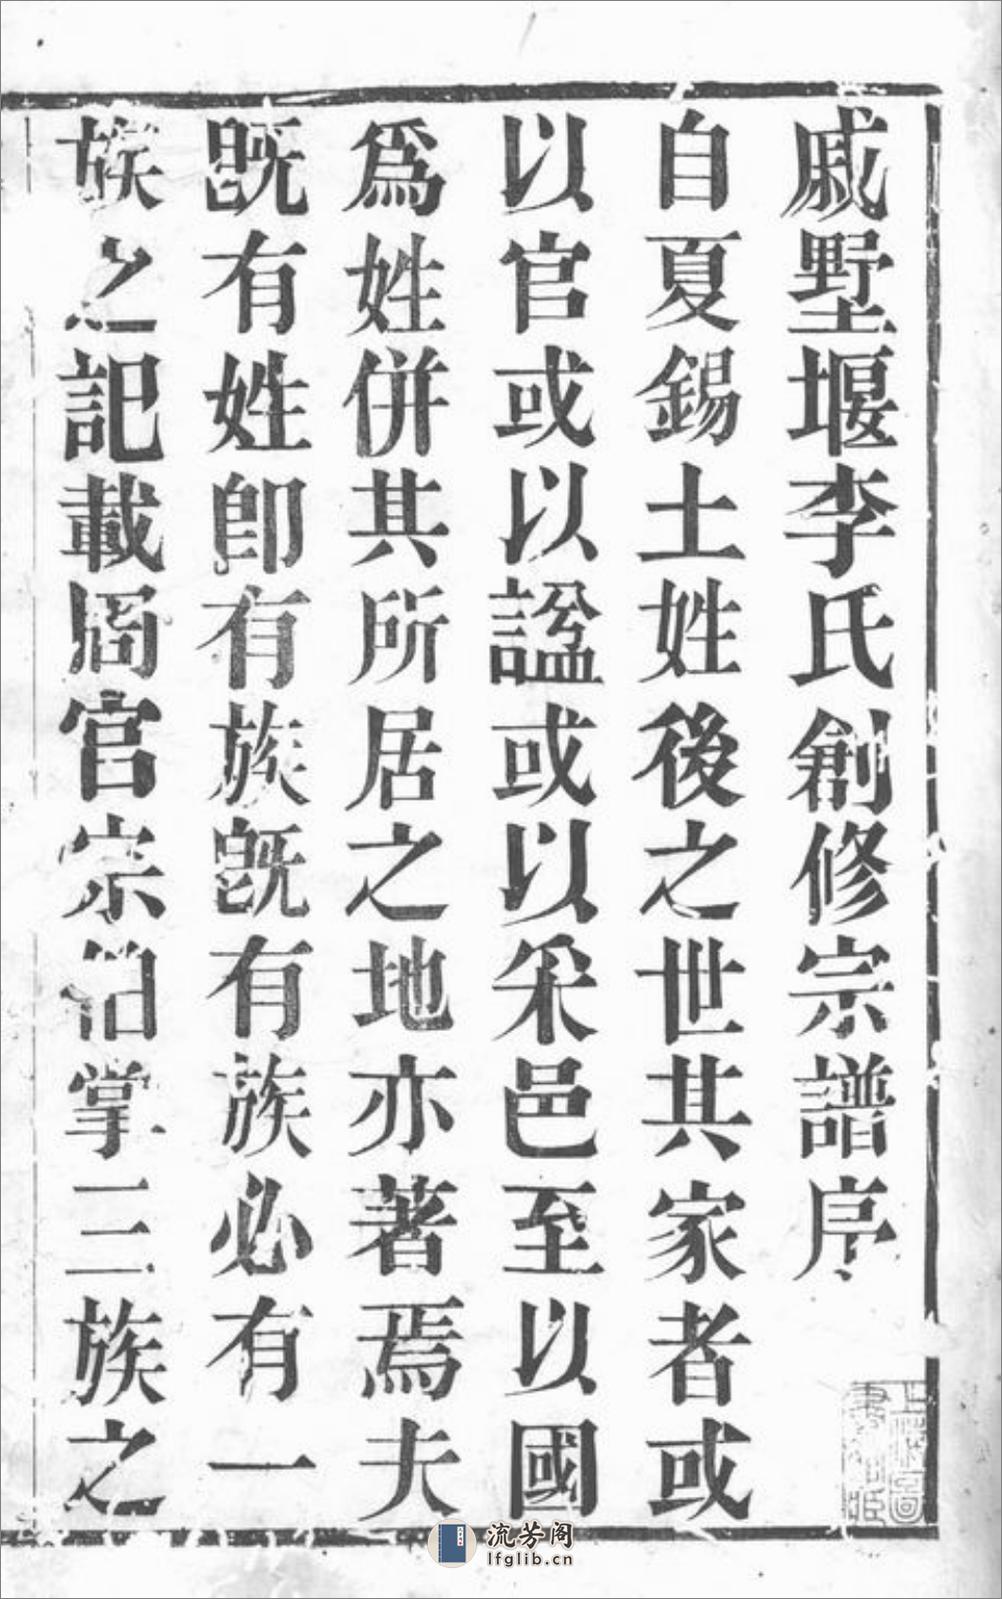 戚墅堰李氏創修宗譜序
自夏錫土姓後之世其家者或
以官或以諡或以采邑至以國
爲姓併其所居之地亦著焉夫
既有姓卽有族既有族必有一
族之記載周官宗伯掌三族之
流芳阁
lfglib.cn